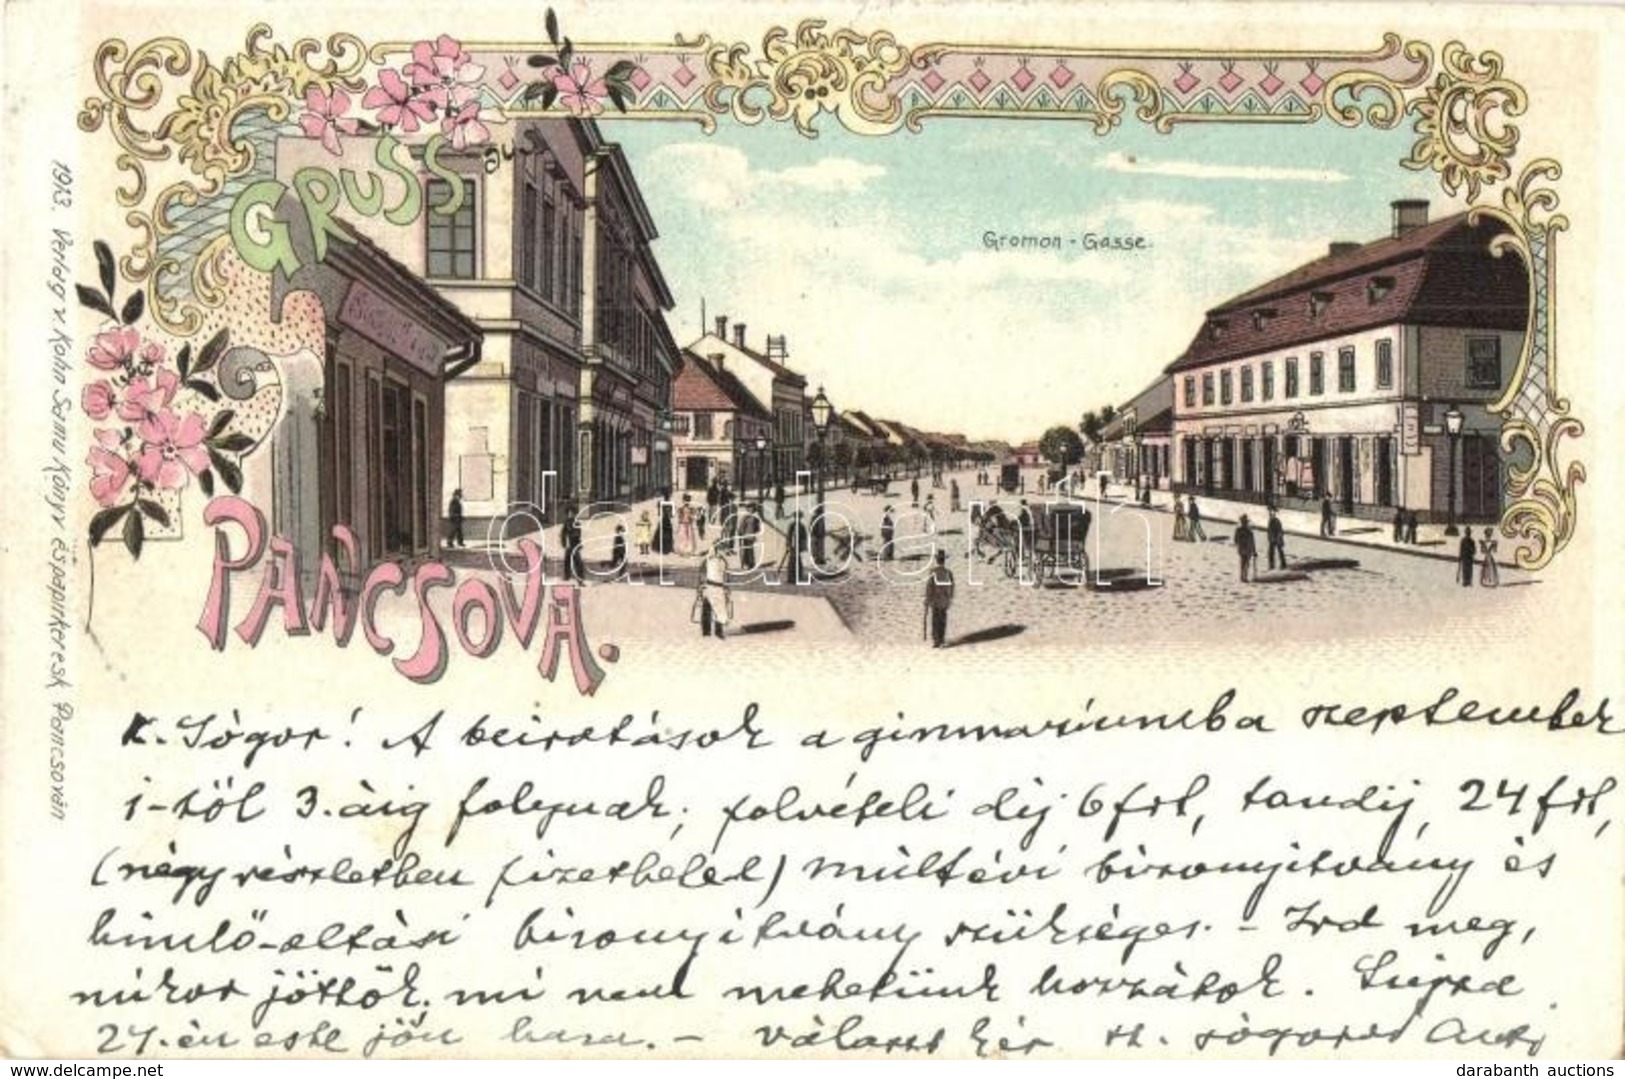 GRUSS aus
PANCSOVA.
Gromon - Gasse.
1913. Verlag v Kohn Samu Könyv és papirkeresk Pancsován
darabanth
K. Sógor! A beiratások a gimnáziumba szeptember
1-től 3.áig folynak; felvételi díj 6 frt, tandíj, 24 frt,
(négy részletben fizethető) múltévi bizonyítvány és
himlő-oltási bizonyítvány szükséges. – Ird meg,
mikor jöttök, mi nem mehetünk hozzátok.
24.-én este jön haza. – választ kér sógorod
darabanth auctions